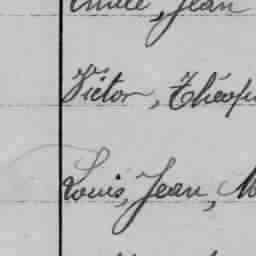 Jean
Victor, Théoph
Louis, Jean, M